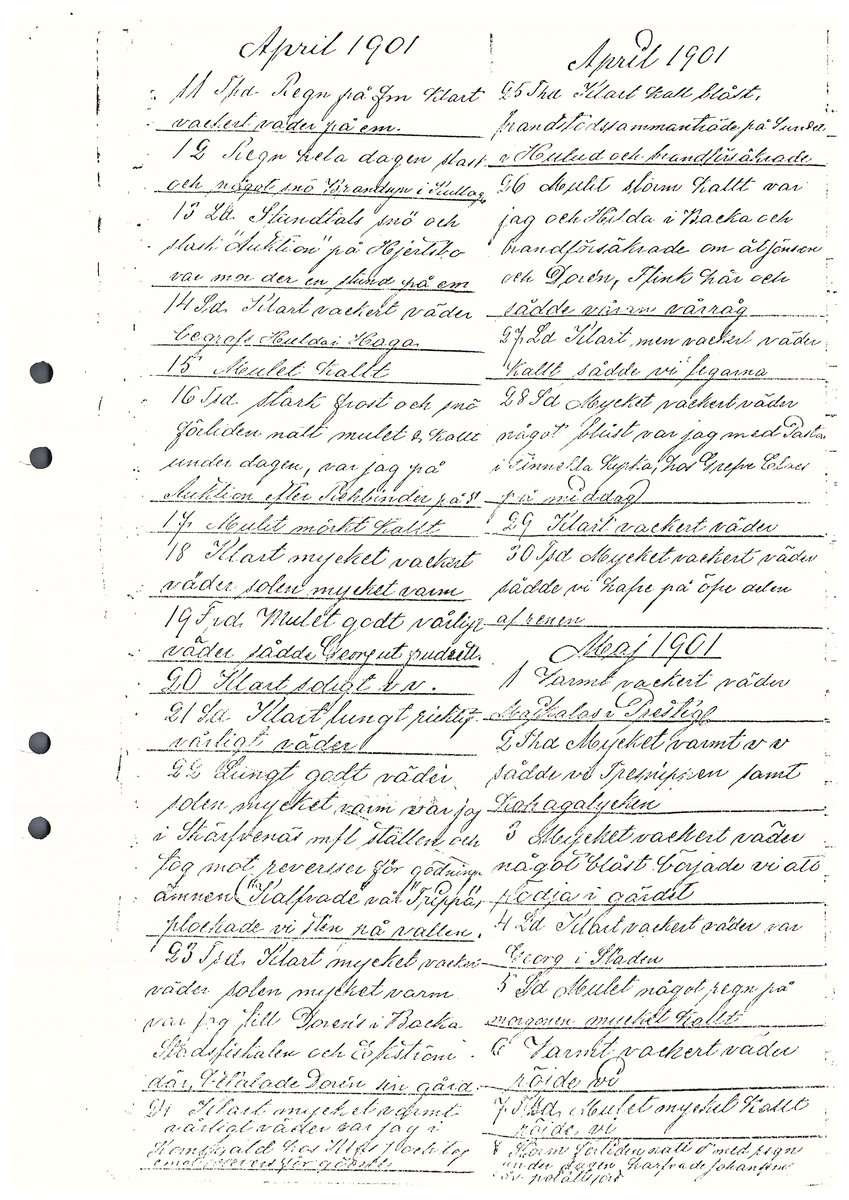 April 1901
11 Thd. Regn på fm Klart
vackert väder på em.
12 Regn hela dagen slask
och något snö Brandsyn i
13 Ld. Stundtals snö och
slask "Auktion" på Hjertsbo
var mor der en stund på em
14 Sd. Klart vackert väder
begrofs Hulda i Haga
15 Mulet kallt
16 Tsd. stark frost och snö
förliden natt mulet & kallt
under dagen, var jag på
Auktion efter Rehbinder på
17 Mulet mörkt kallt
18 Klart mycket vackert
väder solen mycket varm
19 Frd. Mulet godt vårligt
väder sådde Georg ut
20 Klart soligt v v.
21 Sd Klart lungt riktigt
vårligt väder
22 Lungt godt väder
solen mycket varm var jag
i Skärfvenäs mfl ställen och
tog mot reverser för gödnings
ämnen "Kalfvade" vår
plockade vi sten på vallen.
23 Tsd. Klart mycket vackert
väder solen mycket varm
var jag till Dorens i Backa
Stadsfiskalen och Eckström
där, betalade Dorén sin gård
24 Klart mycket varmt
vårligt väder var jag i
hos Klas och tog
emot revers för
April 1901
25 Thd Klart kall blåst,
brandstodssammanträde på
i Hulud och brandförsäkrade
26 Mulet storm kallt var
jag och Hilda i Backa och
brandförsäkrade om åt Jonson
och Dorén, Flink här och
sådde våran vårråg
27 Ld Klart, men vackert väder
kallt sådde vi
28 Sd Mycket vackert väder
något blåst var jag med
i Finnekla kyrka, hos Grefve Claes
på middag
29 Klart vackert väder
30 Tsd Mycket vackert väder
sådde vi hafre på öfre delen
af renen
Maj 1901
1 Varmt vackert väder
Majkalas i
2 Thd Mycket varmt v v
sådde vi samt
Kohagalycken
3 Mycket vackert väder
något blåst började vi att
rödja i gärdet
4 Ld Klart vackert väder var
Georg i Staden
5 Sd Mulet något regn på
morgonen mycket kallt
6 Varmt vackert väder
röjde vi
7 Tsd. Mulet mycket kallt
röjde vi
8 Storm förliden natt o med regn
under dagen, harfvade Johansson